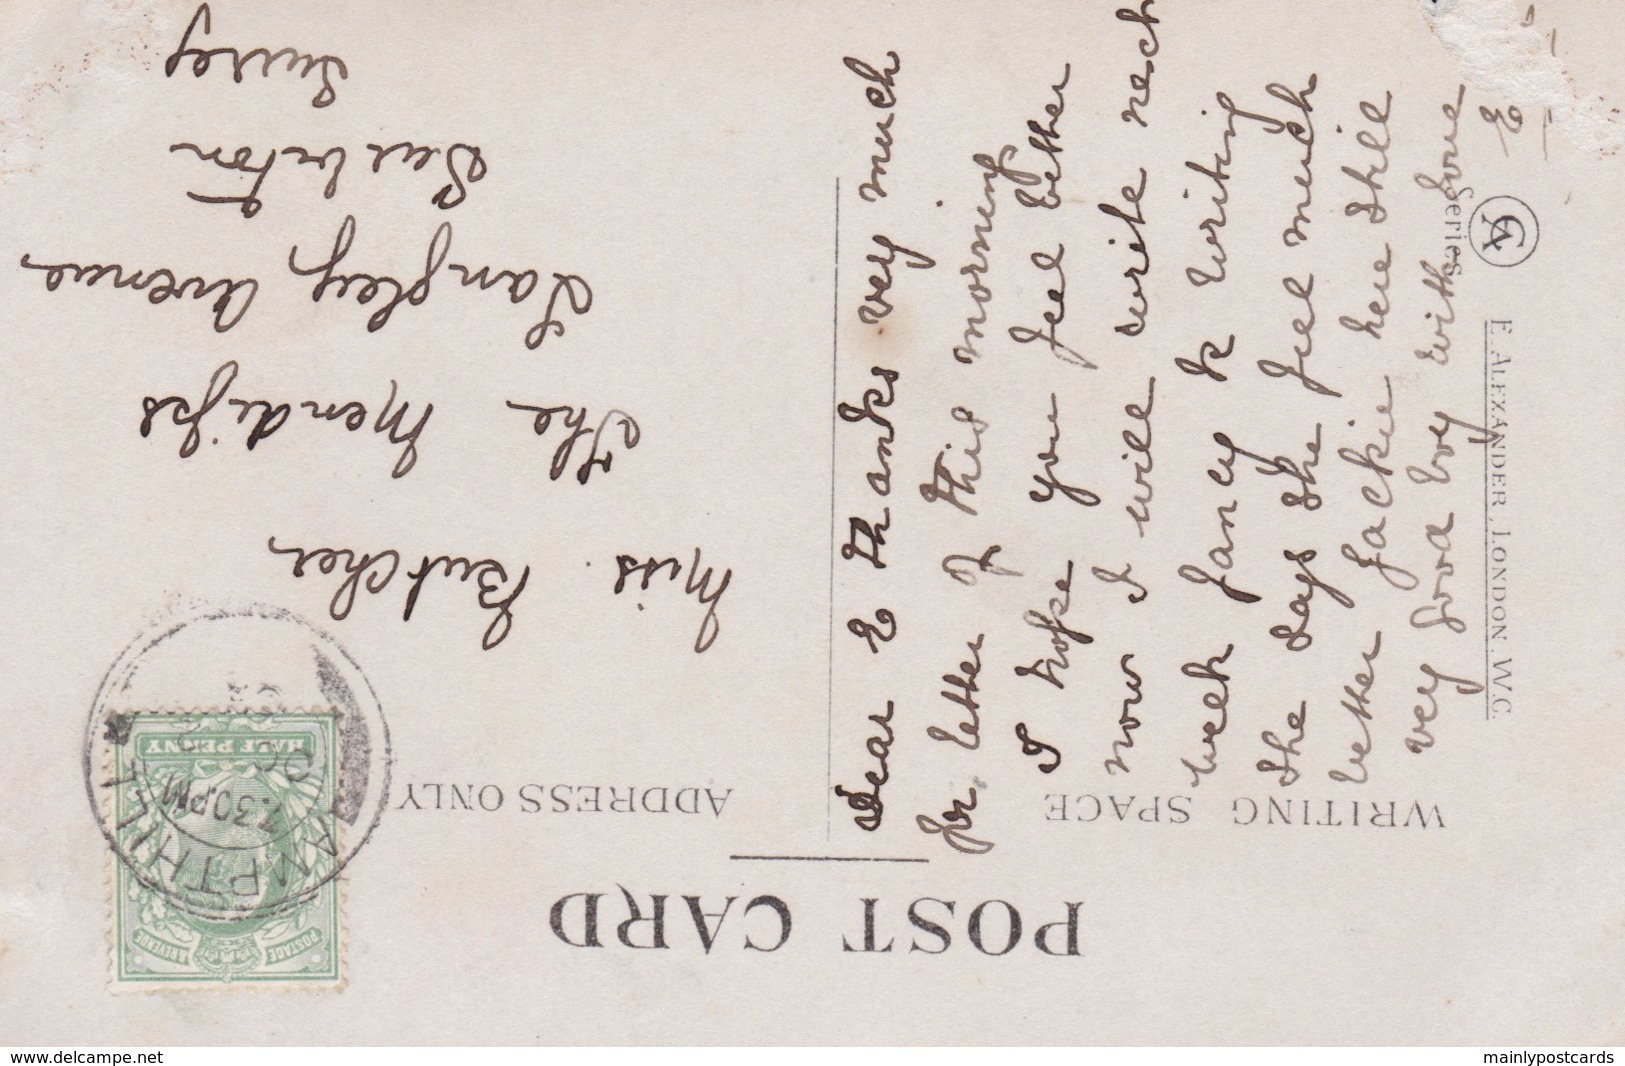 POST CARD
WRITING SPACE
ADDRESS ONLY
HALF PENNY
POSTAGE
& REVENUE
AMPTHILL
7.30PM
OC
Miss. Butcher
The Mendips
Langley Avenue
Surbiton
Surrey
Dear E thanks very much
for letter of this morning
I hope you feel better
now I will write next
week fancy K writing
She says she feel much
better Jackie here still
very good boy with love
E
CA
Series
E. ALEXANDER, LONDON. W.C.
www.delcampe.net
mainlypostcards